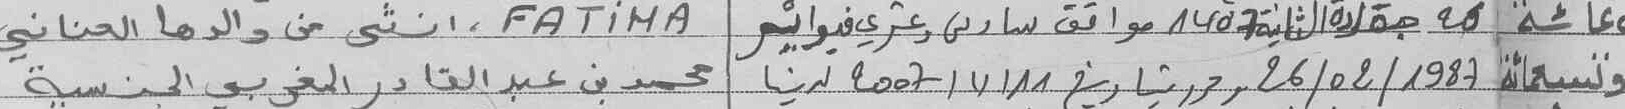 عائمة 26 جمادى الثانية 1407 موافق سادس وعشري فبراير FATIMA ، انثى من والدها العناني
وتسعمائة 26/02/1987 وحرر بتاريخ 2007/7/11 لدينا محمد بن عبد القادر المغربي الجنسية